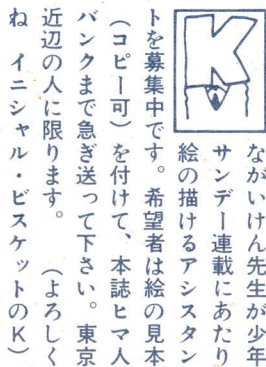 ながいけん先生が少年
サンデー連載にあたり
絵の描けるアシスタン
トを募集中です。希望者は絵の見本
(コピー可)を付けて、本誌ヒマ人
バンクまで急ぎ送って下さい。東京
近辺の人に限ります。 (よろしく
ね イニシャル・ビスケットのK)
K